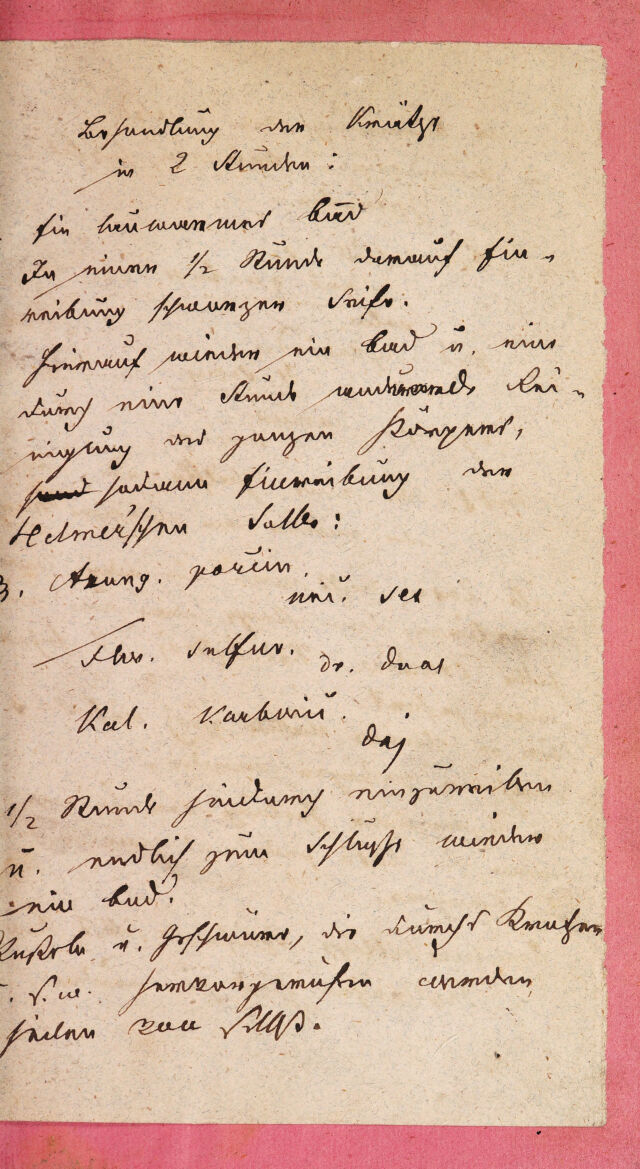 Behandlung der Krätze
in 2 Stunden:
Ein lauwarmes Bad
In einer 1/2 Stunde darauf Ein-
reibung schwarzer Seife.
Hierauf wieder ein Bad u. eine
durch eine Stunde andauernde Rei-
nigung des ganzen Körpers,
sodann Einreibung der
Helmerischen Salbe:
Axung. porcin.
unc. sex
Flor. sulfur.
dr. duas
Kal. Karbonic.
1/2 Stunde hindurch einzureiben
u. endlich zum Schluße wieder
ein Bad.
Pusteln u. Geschwüre, die durchs Kratzen
u. s. w. hervorgerufen werden,
heilen von selbst.